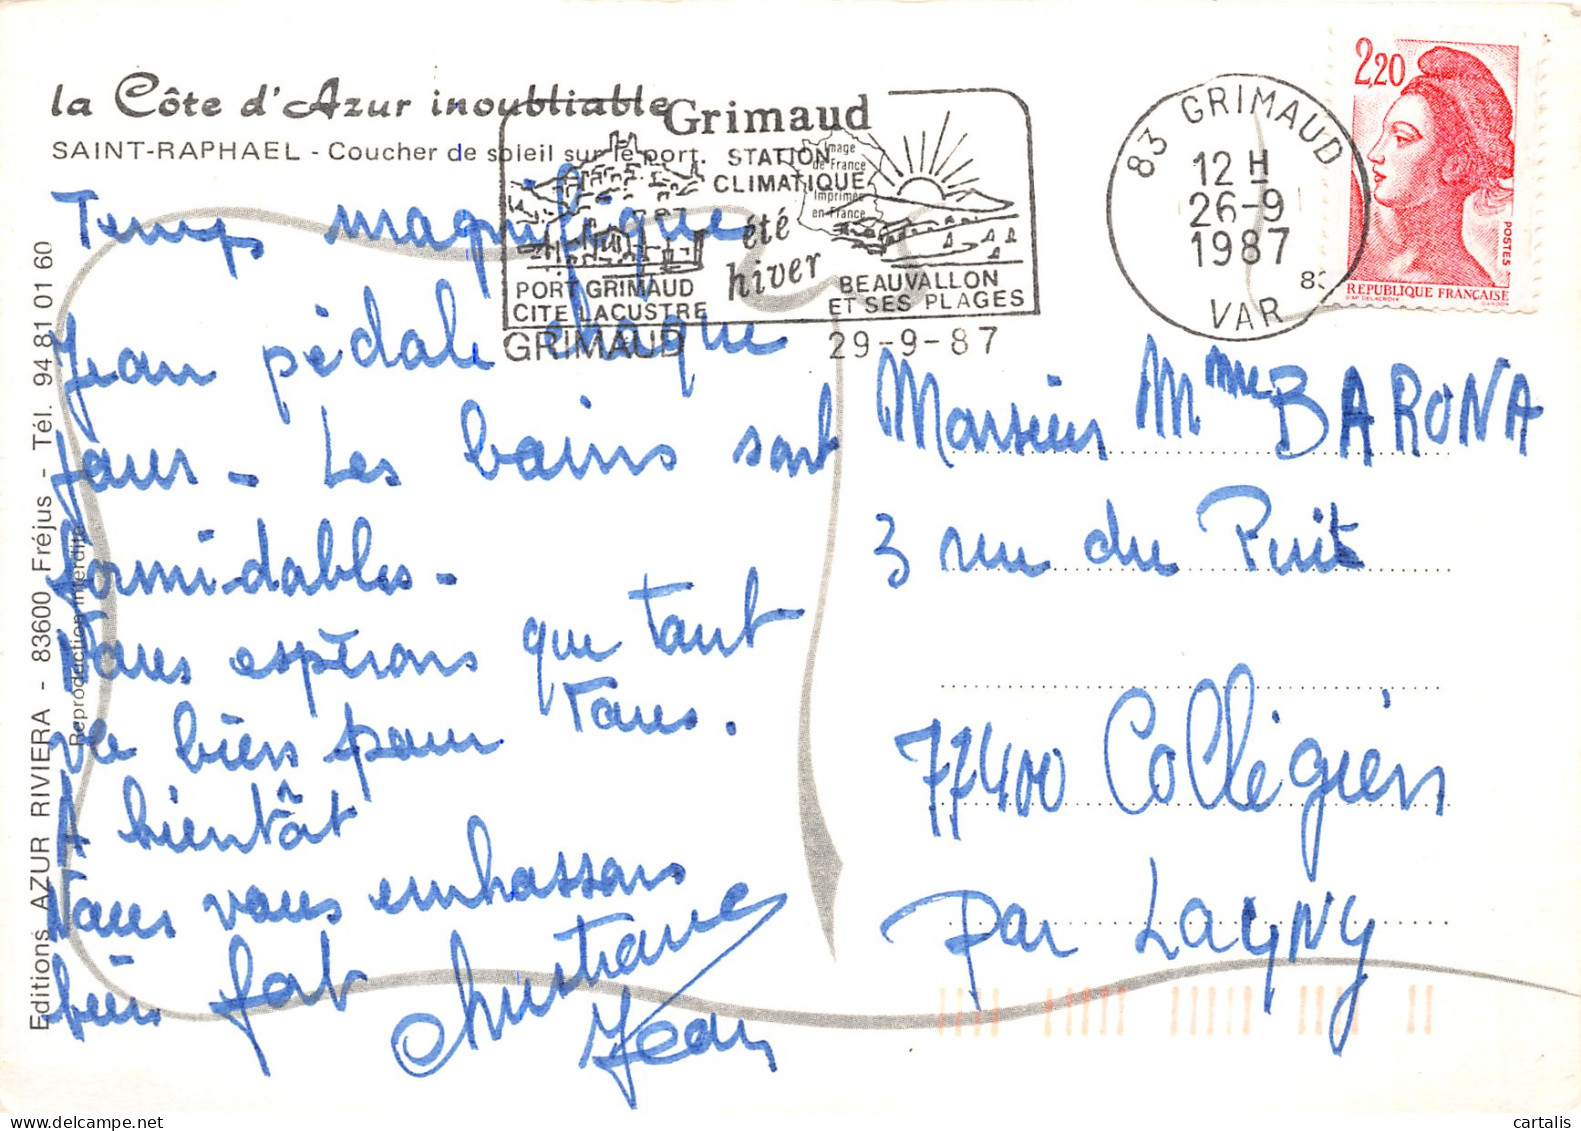 la Côte d'Azur inoubliable
SAINT-RAPHAEL - Coucher de soleil sur le port.
Grimaud
STATION
CLIMATIQUE
été
hiver
PORT GRIMAUD
CITE LACUSTRE
BEAUVALLON
ET SES PLAGES
GRIMAUD
29-9-87
Image
de France
Imprimée
en France
83 GRIMAUD
12 H
26-9
1987
VAR
83
2,20
POSTES
REPUBLIQUE FRANÇAISE
Temps magnifique
Jean pédale chaque
jour - Les bains sont
formidables -
Nous espérons que tout
va bien pour vous.
A bientôt
Nous vous embrassons
bien fort Christiane
Jean
Monsieur Mme BARONA
3 rue du Puits
77400 Collégien
par LAGNY
Editions AZUR RIVIERA - 83600 Fréjus - Tél. 94 81 01 60
Reproduction interdite
cartalis